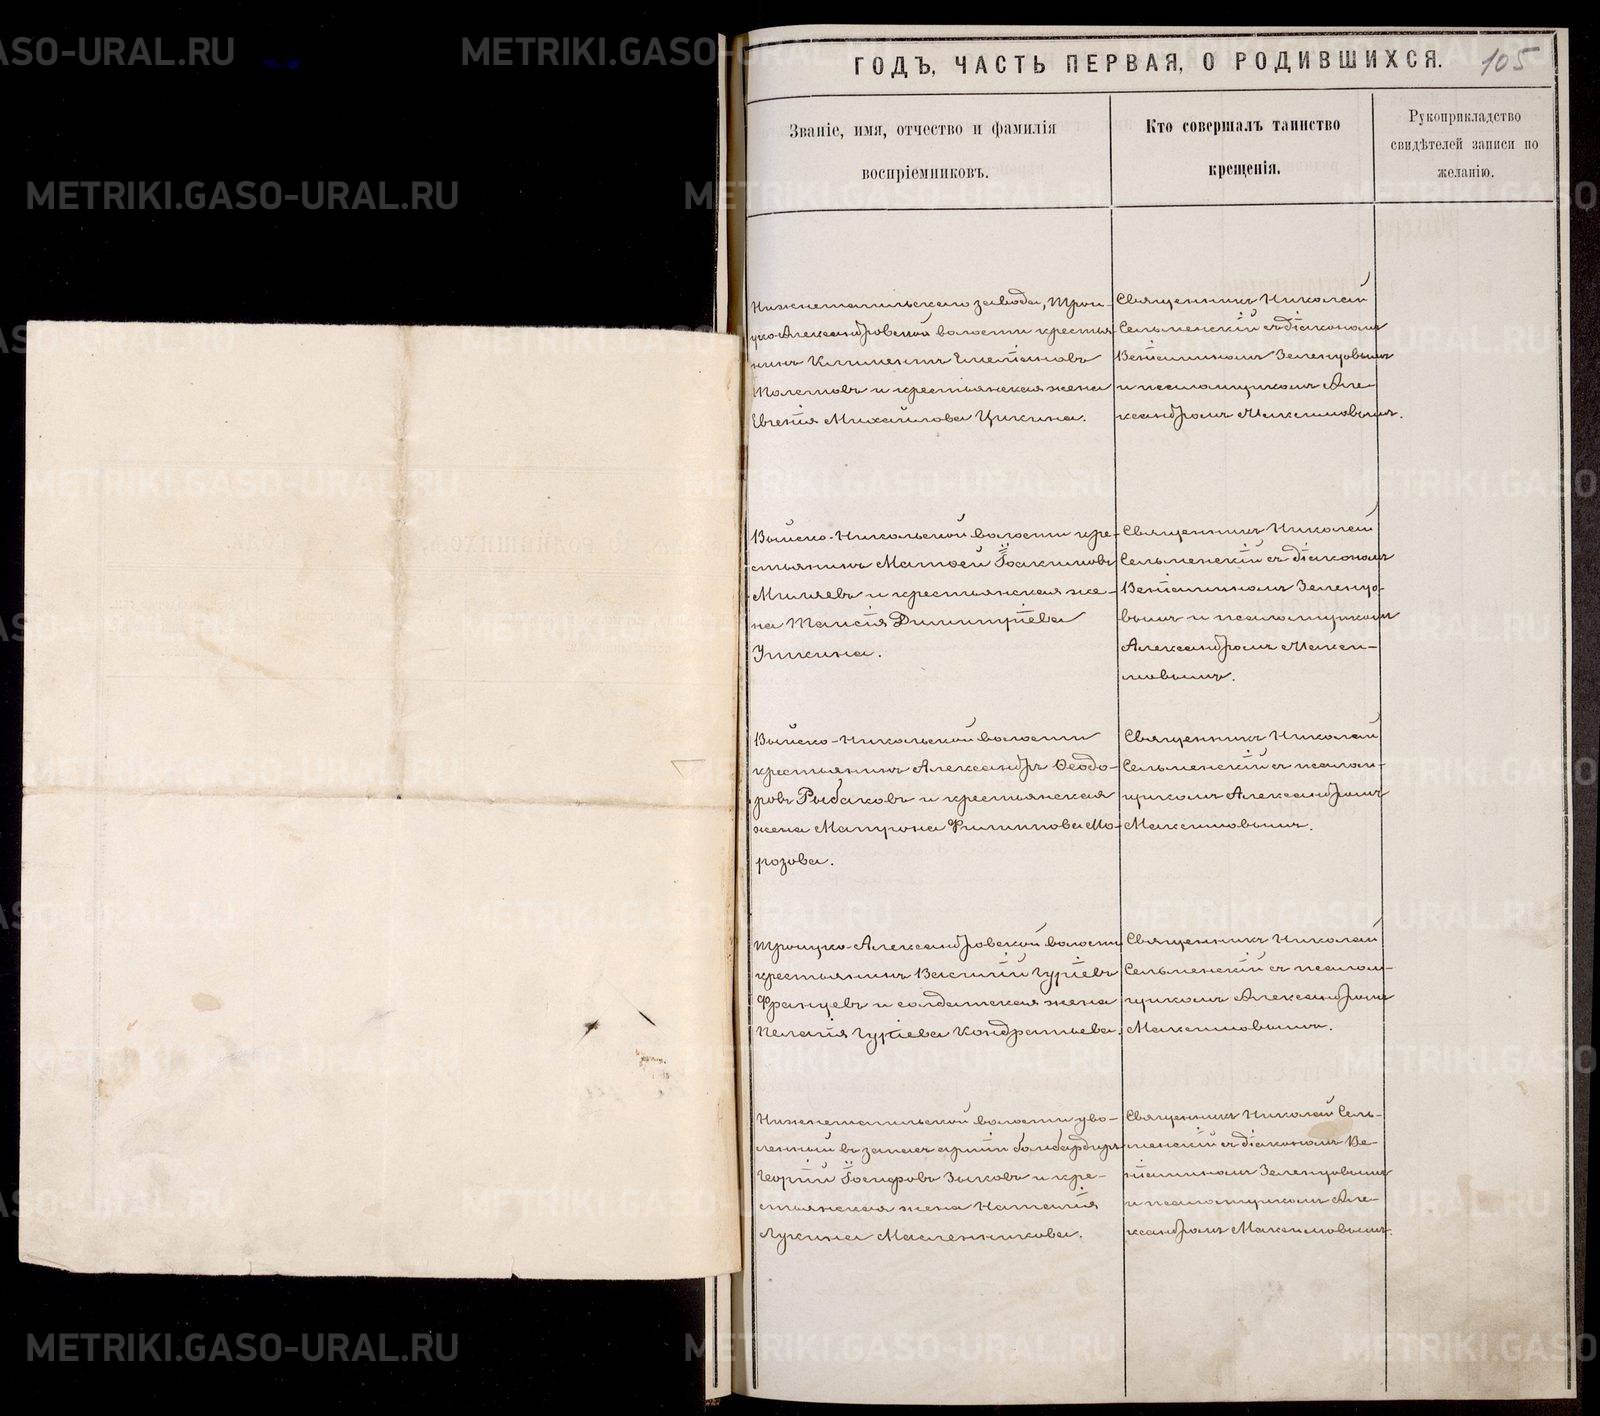 ГОДЪ, ЧАСТЬ ПЕРВАЯ, О РОДИВШИХСЯ. 105
Званіе, имя, отчество и фамилія
воспріемниковъ.
Кто совершалъ таинство
крещенія.
Рукоприкладство
свидѣтелей записи по
желанію.
Нижнетагильскаго завода, Трои-
цко-Александровской волости крестья-
нинъ Климентъ Емеліановъ
и крестьянская жена
Евгенія Михайлова Цикина.
Священникъ Николай
Сельменскій съ діакономъ
Веніаминомъ Зеленцовымъ
и псаломщикомъ Але-
ксандромъ Максимовымъ.
Выйско-Никольской волости кре-
стьянинъ Матѳей Іоакимовъ
Миляевъ и крестьянская же-
на Таисія Димитріева
Уткина.
Священникъ Николай
Сельменскій съ діакономъ
Веніаминомъ Зеленцо-
вымъ и псаломщикомъ
Александромъ Макси-
мовымъ.
Выйско-Никольской волости
крестьянинъ Александръ Ѳеодо-
ровъ Рыбаковъ и крестьянская
жена Матрона Филиппова Мо-
розова.
Священникъ Николай
Сельменскій съ псалом-
щикомъ Александромъ
Максимовымъ.
Троицко-Александровской волости
крестьянинъ Василій Гуріевъ
Францевъ и солдатская жена
Пелагія Гуріева Кондратьева.
Священникъ Николай
Сельменскій съ псалом-
щикомъ Александромъ
Максимовымъ.
Нижнетагильской волости уво-
ленный въ запасъ арміи бомбардиръ
Георгій Іосифовъ Зыковъ и кре-
стьянская жена Наталія
Лукина Масленникова.
Священникъ Николай Сель-
менскій съ діакономъ Ве-
ніаминомъ Зеленцовымъ
и псаломщикомъ Але-
ксандромъ Максимовымъ.
METRIKI.GASO-URAL.RU